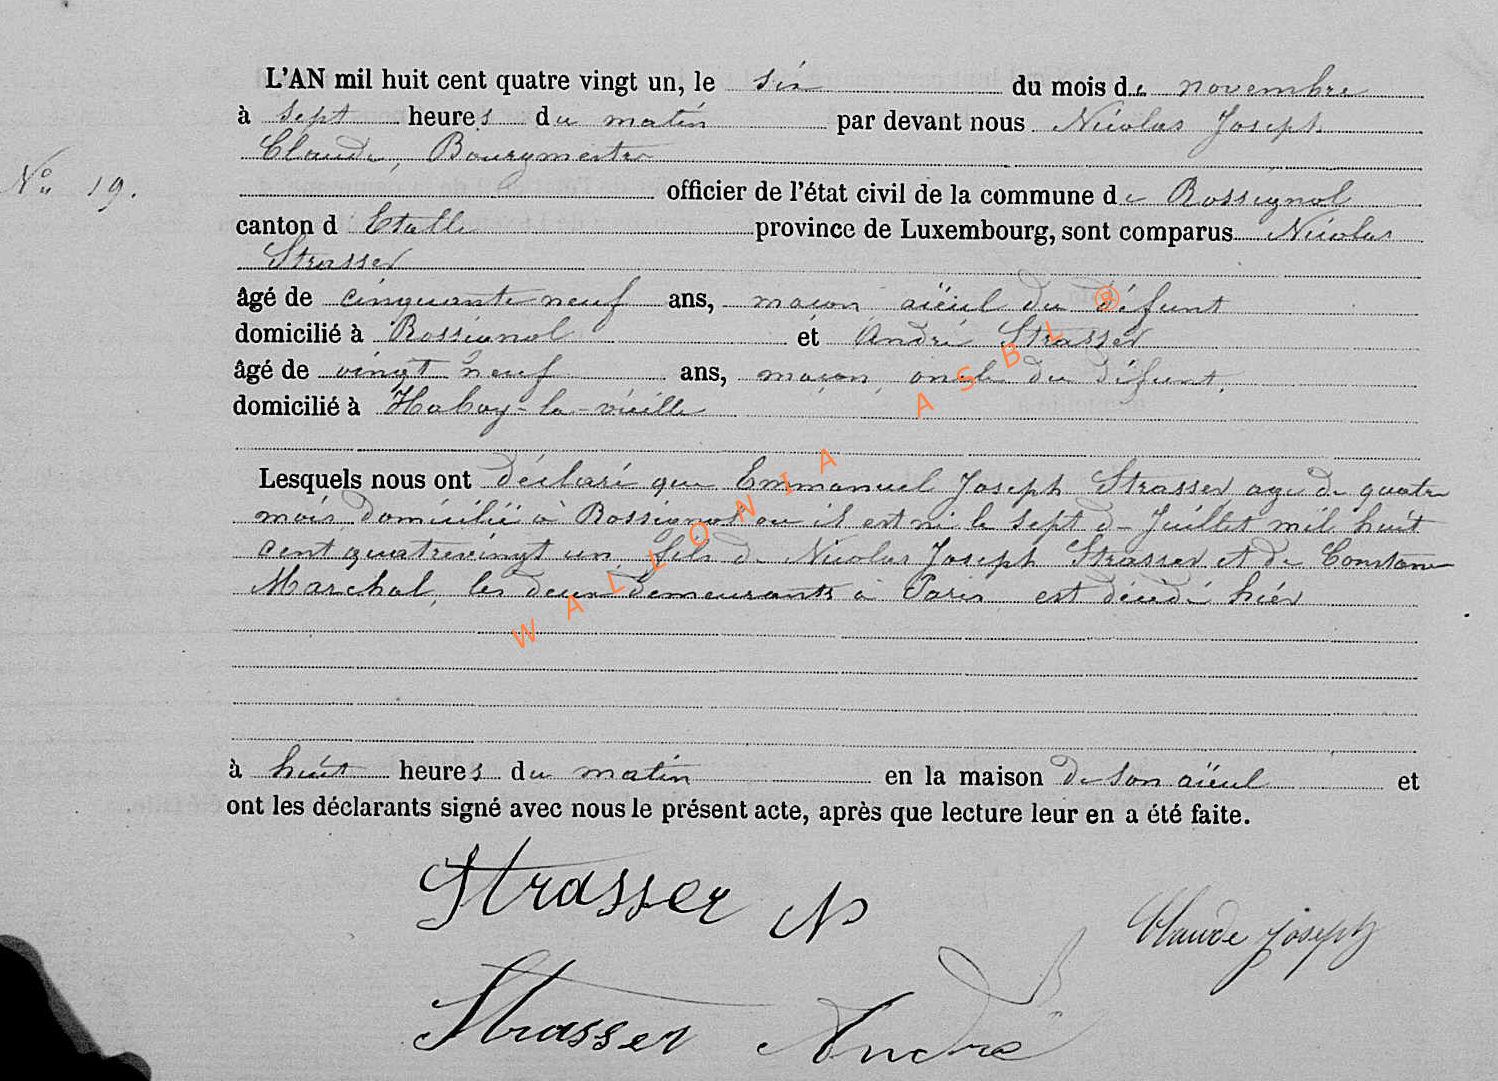 L'AN mil huit cent quatre vingt un, le six du mois de novembre
à sept heures du matin par devant nous Nicolas Joseph
Claude, Bourgmestre
N° 19.
officier de l'état civil de la commune de Rossignol
canton d'Etalle province de Luxembourg, sont comparus Nicolas
Strasser
âgé de cinquante neuf ans, maçon, aïeul du défunt
domicilié à Rossignol et André Strasser
âgé de vingt neuf ans, maçon, oncle du défunt,
domicilié à Habay-la-vieille
Lesquels nous ont déclaré que Emmanuel Joseph Strasser age de quatre
mois domicilié à Rossignol ou il est né le sept de Juillet mil huit
cent quatrevingt un, fils de Nicolas Joseph Strasser et de Constance
Marchal, les deux demeurants à Paris est décédé hier
à huit heures du matin en la maison de son aïeul et
ont les déclarants signé avec nous le présent acte, après que lecture leur en a été faite.
Strasser N
Claude Joseph
Strasser André
WALLONIA ASBL ®